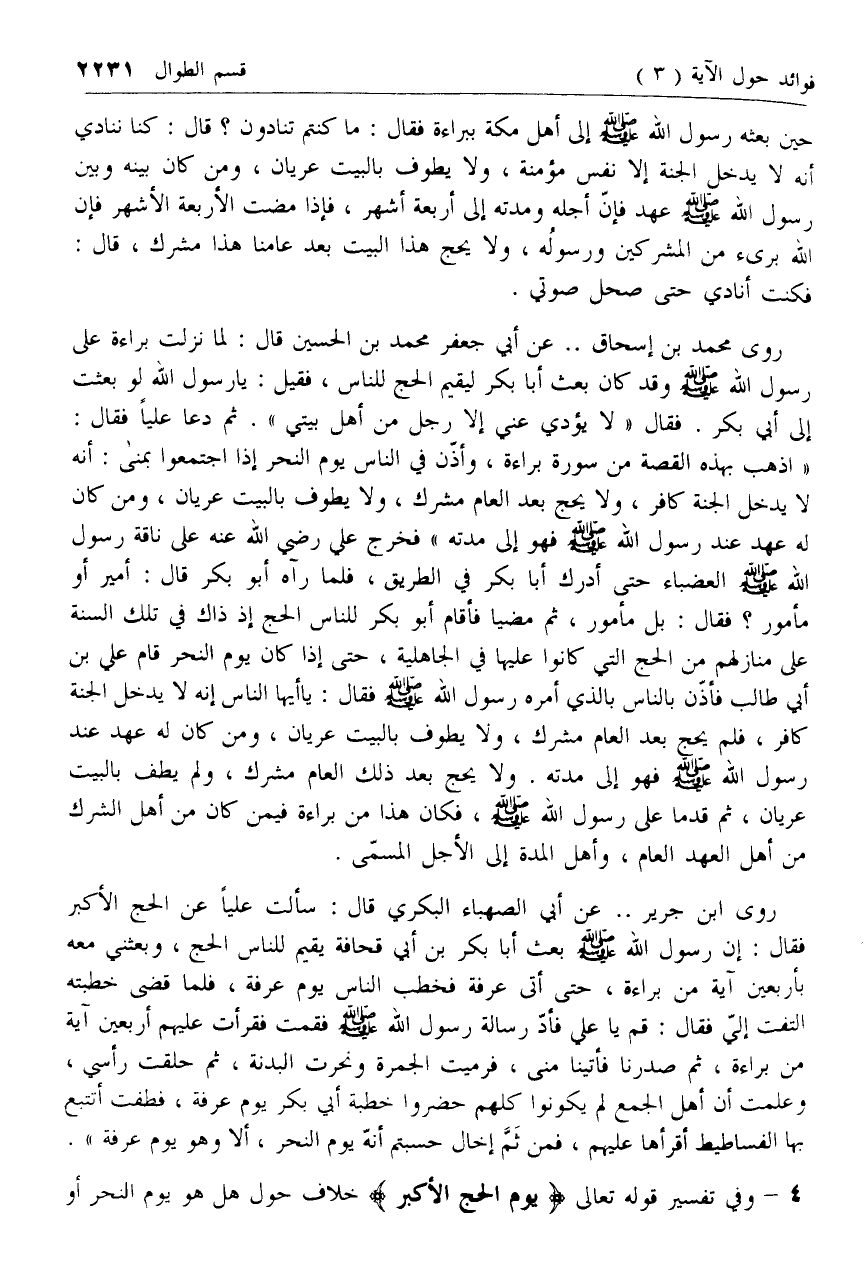 فوائد حول الآية ( ٣ ) قسم الطوال ٢٢٣١
حين بعثه رسول الله ﷺ إلى أهل مكة ببراءة فقال : ما كنتم تنادون ؟ قال : كنا ننادي
أنه لا يدخل الجنة إلا نفس مؤمنة ، ولا يطوف بالبيت عريان ، ومن كان بينه وبين
رسول الله ﷺ عهد فإنّ أجله ومدته إلى أربعة أشهر ، فإذا مضت الأربعة الأشهر فإن
الله برىء من المشركين ورسولُه ، ولا يحج هذا البيت بعد عامنا هذا مشرك ، قال :
فكنت أنادي حتى صحل صوتي .
روى محمد بن إسحاق .. عن أبي جعفر محمد بن الحسين قال : لما نزلت براءة على
رسول الله ﷺ وقد كان بعث أبا بكر ليقيم الحج للناس ، فقيل : يارسول الله لو بعثت
إلى أبي بكر . فقال « لا يؤدي عني إلا رجل من أهل بيتي » . ثم دعا علياً فقال :
« اذهب بهذه القصة من سورة براءة ، وأذّن في الناس يوم النحر إذا اجتمعوا بمنىٰ : أنه
لا يدخل الجنة كافر ، ولا يحج بعد العام مشرك ، ولا يطوف بالبيت عريان ، ومن كان
له عهد عند رسول الله ﷺ فهو إلى مدته » فخرج علي رضي الله عنه على ناقة رسول
الله ﷺ العضباء حتى أدرك أبا بكر في الطريق ، فلما رآه أبو بكر قال : أمير أو
مأمور ؟ فقال : بل مأمور ، ثم مضيا فأقام أبو بكر للناس الحج إذ ذاك في تلك السنة
على منازلهم من الحج التي كانوا عليها في الجاهلية ، حتى إذا كان يوم النحر قام علي بن
أبي طالب فأذّن بالناس بالذي أمره رسول الله ﷺ فقال : ياأيها الناس إنه لا يدخل الجنة
كافر ، فلم يحج بعد العام مشرك ، ولا يطوف بالبيت عريان ، ومن كان له عهد عند
رسول الله ﷺ فهو إلى مدته . ولا يحج بعد ذلك العام مشرك ، ولم يطف بالبيت
عريان ، ثم قدما على رسول الله ﷺ ، فكان هذا من براءة فيمن كان من أهل الشرك
من أهل العهد العام ، وأهل المدة إلى الأجل المسمّى .
روى ابن جرير .. عن أبي الصهباء البكري قال : سألت علياً عن الحج الأكبر
فقال : إن رسول الله ﷺ بعث أبا بكر بن أبي قحافة يقيم للناس الحج ، وبعثني معه
بأربعين آية من براءة ، حتى أتى عرفة فخطب الناس يوم عرفة ، فلما قضى خطبته
التفت إليّ فقال : قم يا علي فأدّ رسالة رسول الله ﷺ فقمت فقرأت عليهم أربعين آية
من براءة ، ثم صدرنا فأتينا منى ، فرميت الجمرة ونحرت البدنة ، ثم حلقت رأسي ،
وعلمت أن أهل الجمع لم يكونوا كلهم حضروا خطبة أبي بكر يوم عرفة ، فطفت أتتبع
بها الفساطيط أقرأها عليهم ، فمن ثَمَّ إخال حسبتم أنهّ يوم النحر ، ألا وهو يوم عرفة » .
٤ – وفي تفسير قوله تعالى ﴿ يوم الحج الأكبر ﴾ خلاف حول هل هو يوم النحر أو